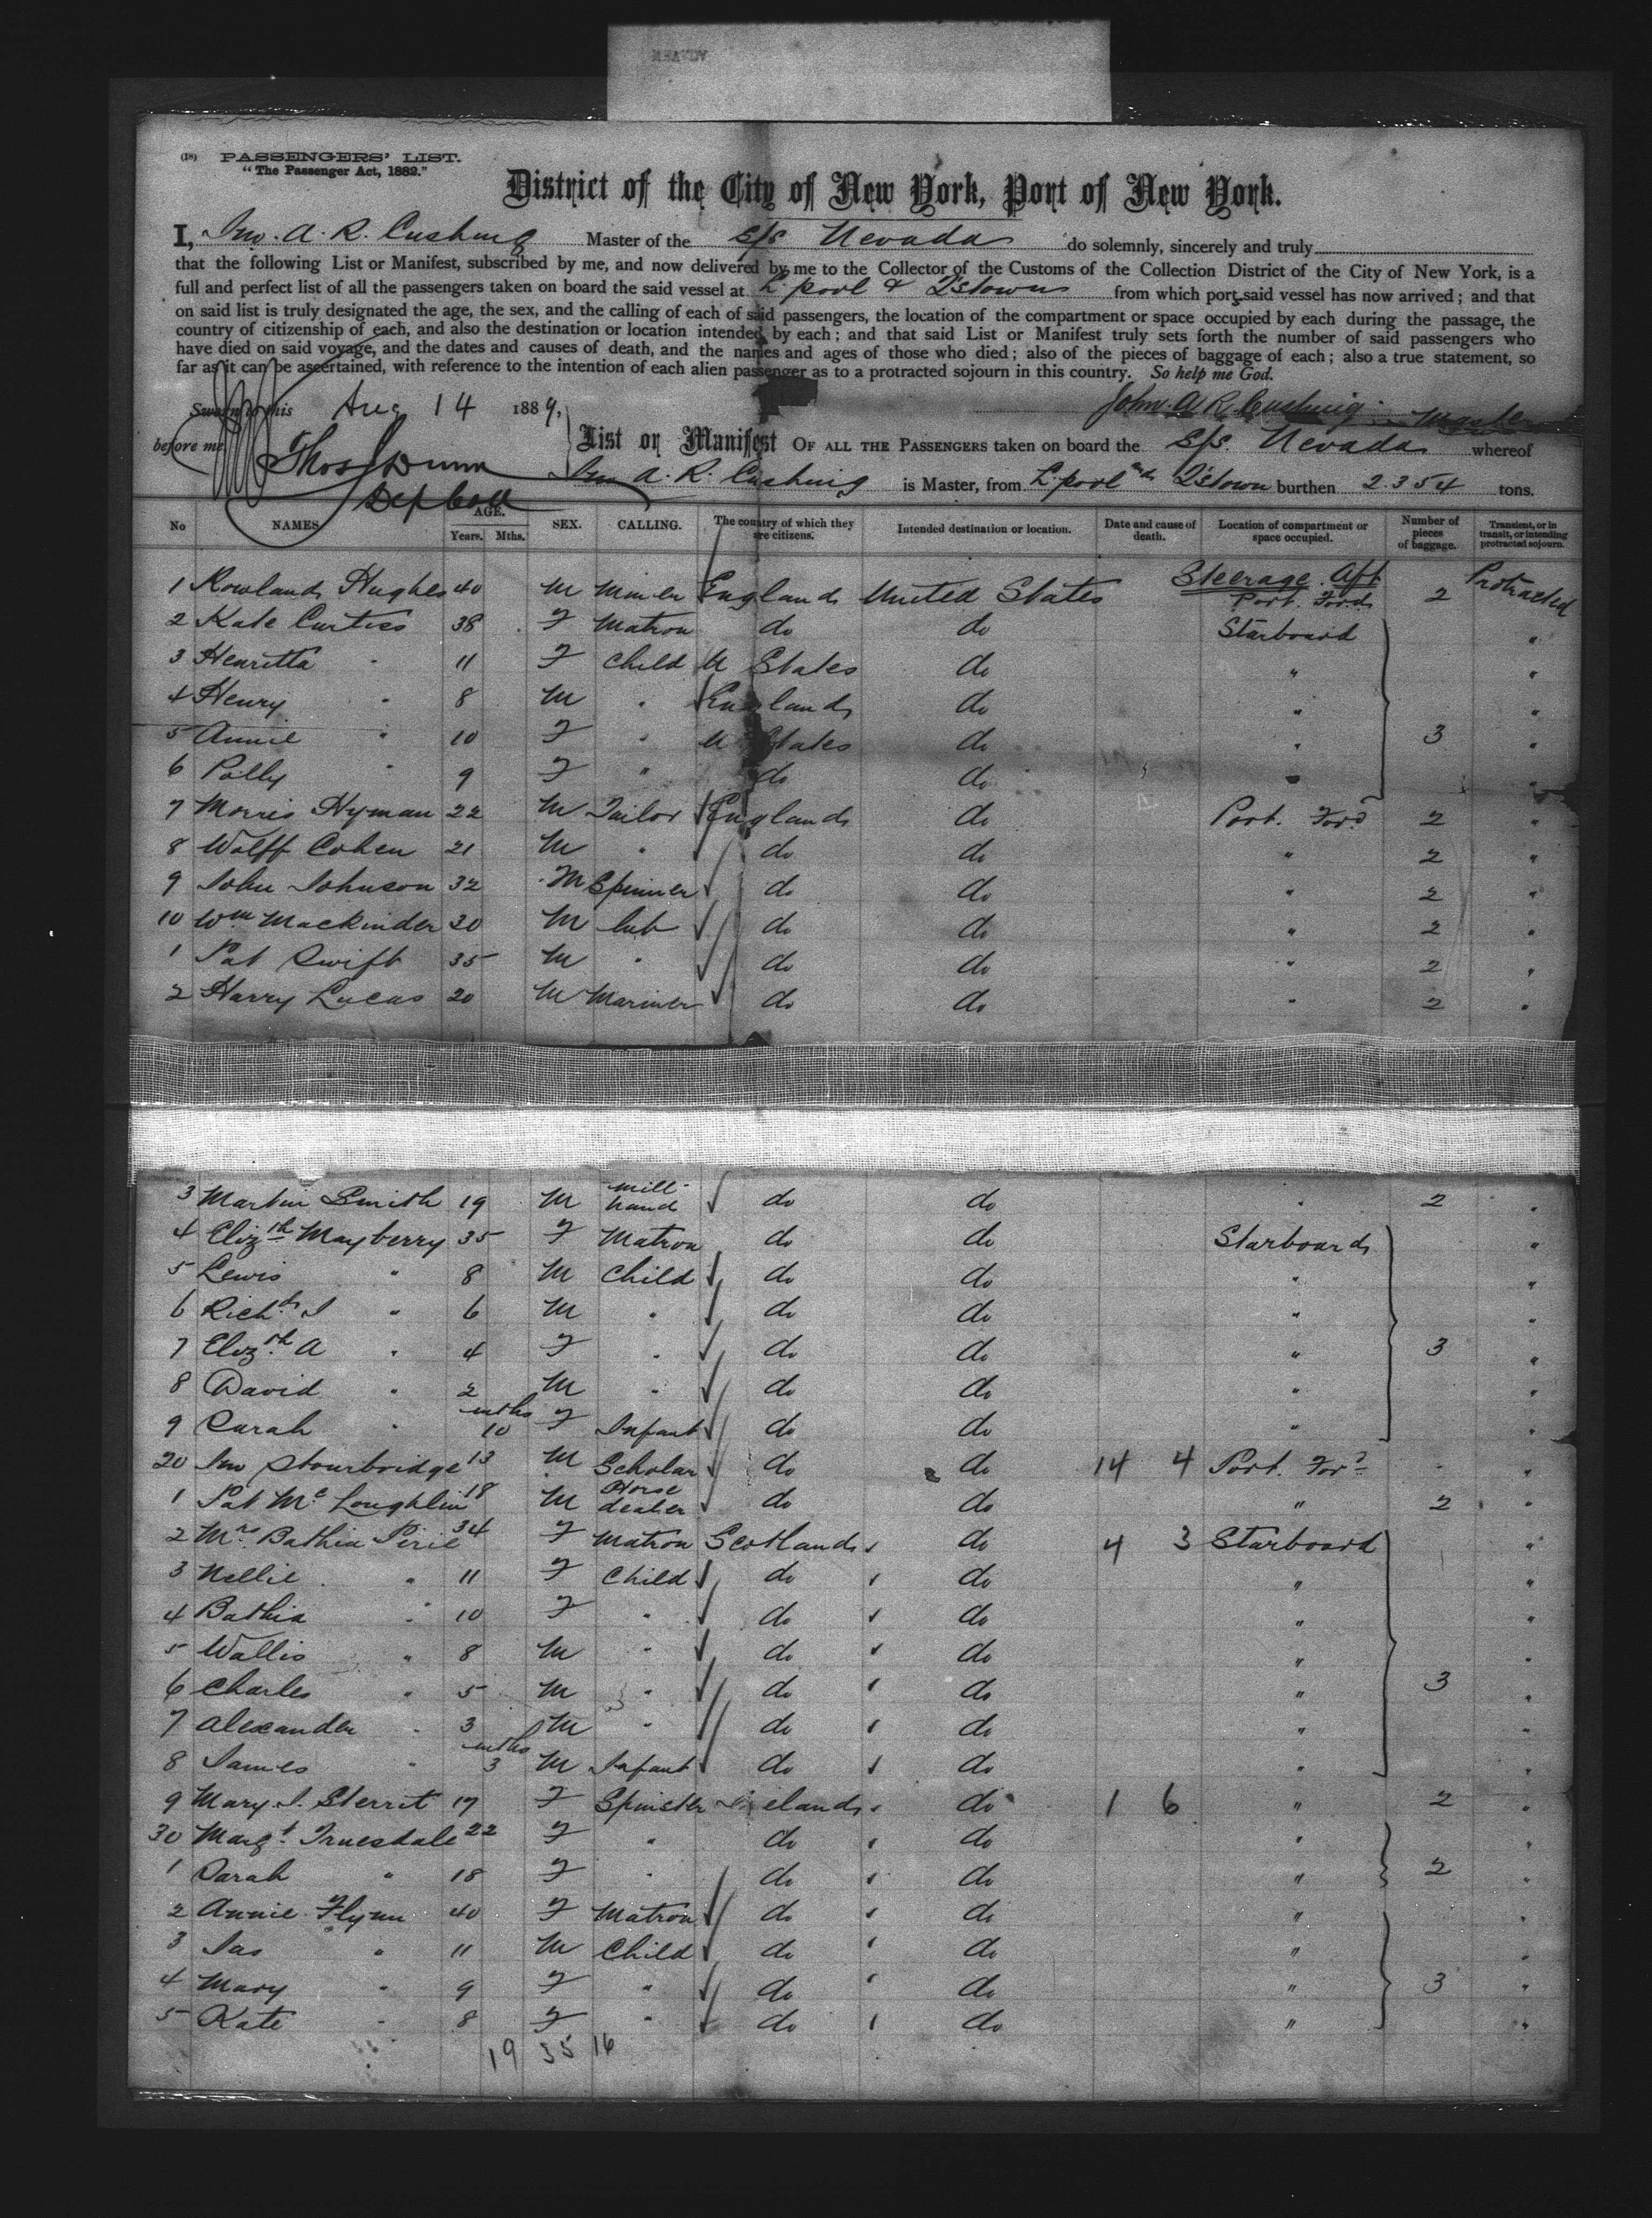 (18) PASSENGERS' LIST.
"The Passenger Act, 1882."
District of the City of New York, Port of New York.
I, Jno. A. R. Cushing Master of the S/S Nevada do solemnly, sincerely and truly
that the following List or Manifest, subscribed by me, and now delivered by me to the Collector of the Customs of the Collection District of the City of New York, is a
full and perfect list of all the passengers taken on board the said vessel at L'pool & Q'stown from which port said vessel has now arrived; and that
on said list is truly designated the age, the sex, and the calling of each of said passengers, the location of the compartment or space occupied by each during the passage, the
country of citizenship of each, and also the destination or location intended by each; and that said List or Manifest truly sets forth the number of said passengers who
have died on said voyage, and the dates and causes of death, and the names and ages of those who died; also of the pieces of baggage of each; also a true statement, so
far as it can be ascertained, with reference to the intention of each alien passenger as to a protracted sojourn in this country. So help me God.
Sworn to this Aug 14 1889, John A R Cushing Master
before me Thos Dunn
Dep Coll
List or Manifest OF ALL THE PASSENGERS taken on board the S/S. Nevada whereof
Jno A. R. Cushing is Master, from L'pool and Q'stown burthen 2.354 tons.
No NAMES AGE. Years. Mths. SEX. CALLING. The country of which they are citizens. Intended destination or location. Date and cause of death. Location of compartment or space occupied. Number of pieces of baggage. Transient, or in transit, or intending protracted sojourn.
Steerage. Aft
1 Rowland Hughes 40 M Miner England United States Port. Ford 2 Protracted
2 Kate Curtiss 38 F Matron do do Starboard "
3 Henrietta " 11 F Child U States do " "
4 Henry " 8 M " England do " "
5 Annie " 10 F " U States do " 3 "
6 Polly " 9 F " do do " "
7 Morris Hyman 22 M Tailor England do Port. Ford 2 "
8 Wolff Cohen 21 M " do do " 2 "
9 John Johnson 32 M Spinner do do " 2 "
10 Wm Mackinder 30 M lab do do " 2 "
1 Pat Swift 35 M " do do " 2 "
2 Harry Lucas 20 M Mariner do do " 2 "
3 Martin Smith 19 M mill hand do do " 2 "
4 Elizth Mayberry 35 F Matron do do Starboard "
5 Lewis " 8 M Child do do " "
6 Richd J " 6 M " do do " "
7 Elizth A " 4 F " do do " 3 "
8 David " 2 M " do do " "
9 Sarah " mths 10 F Infant do do " "
20 Jno Stourbridge 13 M Scholar do do 14 4 Port. Ford " "
1 Pat McLoughlin 18 M Horse dealer do do " 2 "
2 Mrs Bathia Pirie 34 F Matron Scotland do 4 3 Starboard "
3 Nellie " 11 F Child do do " "
4 Bathia " 10 F " do do " "
5 Wallis " 8 M " do do " "
6 Charles " 5 M " do do " 3 "
7 Alexander " 3 M " do do " "
8 James " mths 3 M Infant do do " "
9 Mary J. Sterrit 17 F Spinster Ireland do 1 6 " 2 "
30 Margt Truesdale 22 F " do do " "
1 Sarah " 18 F " do do " 2 "
2 Annie Flynn 40 F Matron do do " "
3 Jas " 11 M Child do do " "
4 Mary " 9 F " do do " 3 "
5 Kate " 8 F " do do " "
19 35 16